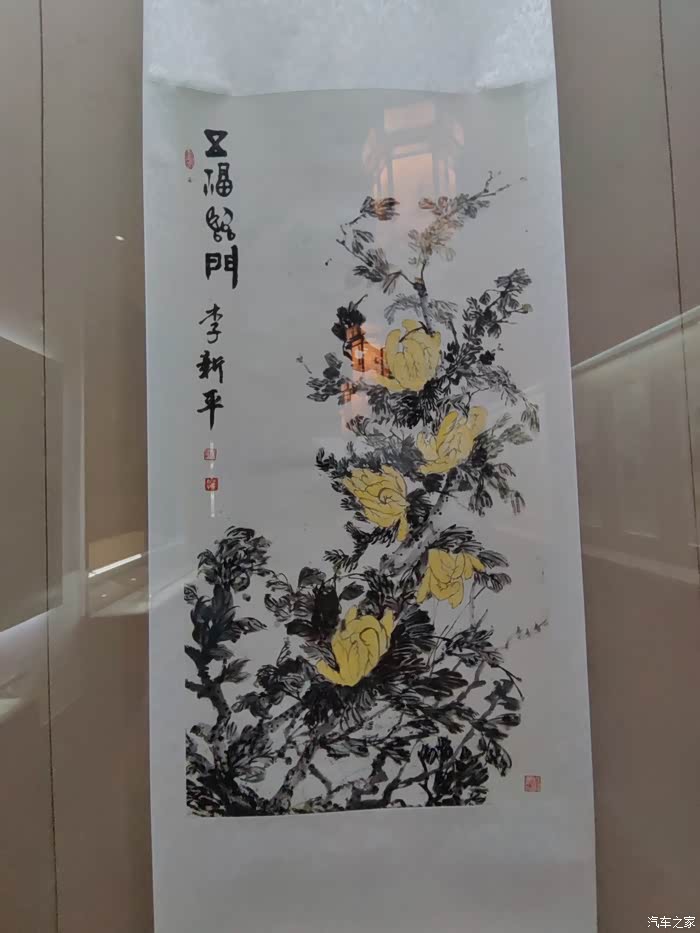 五福臨門
李新平
汽车之家